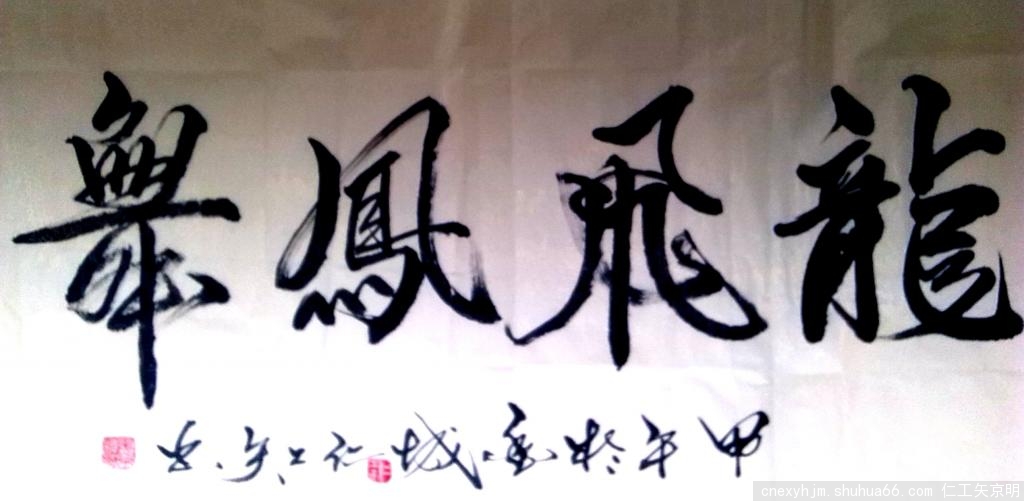 龍飛鳳舞
甲午於城仁工矢書
cnexyhjm.shuhua66.com 仁工矢京明